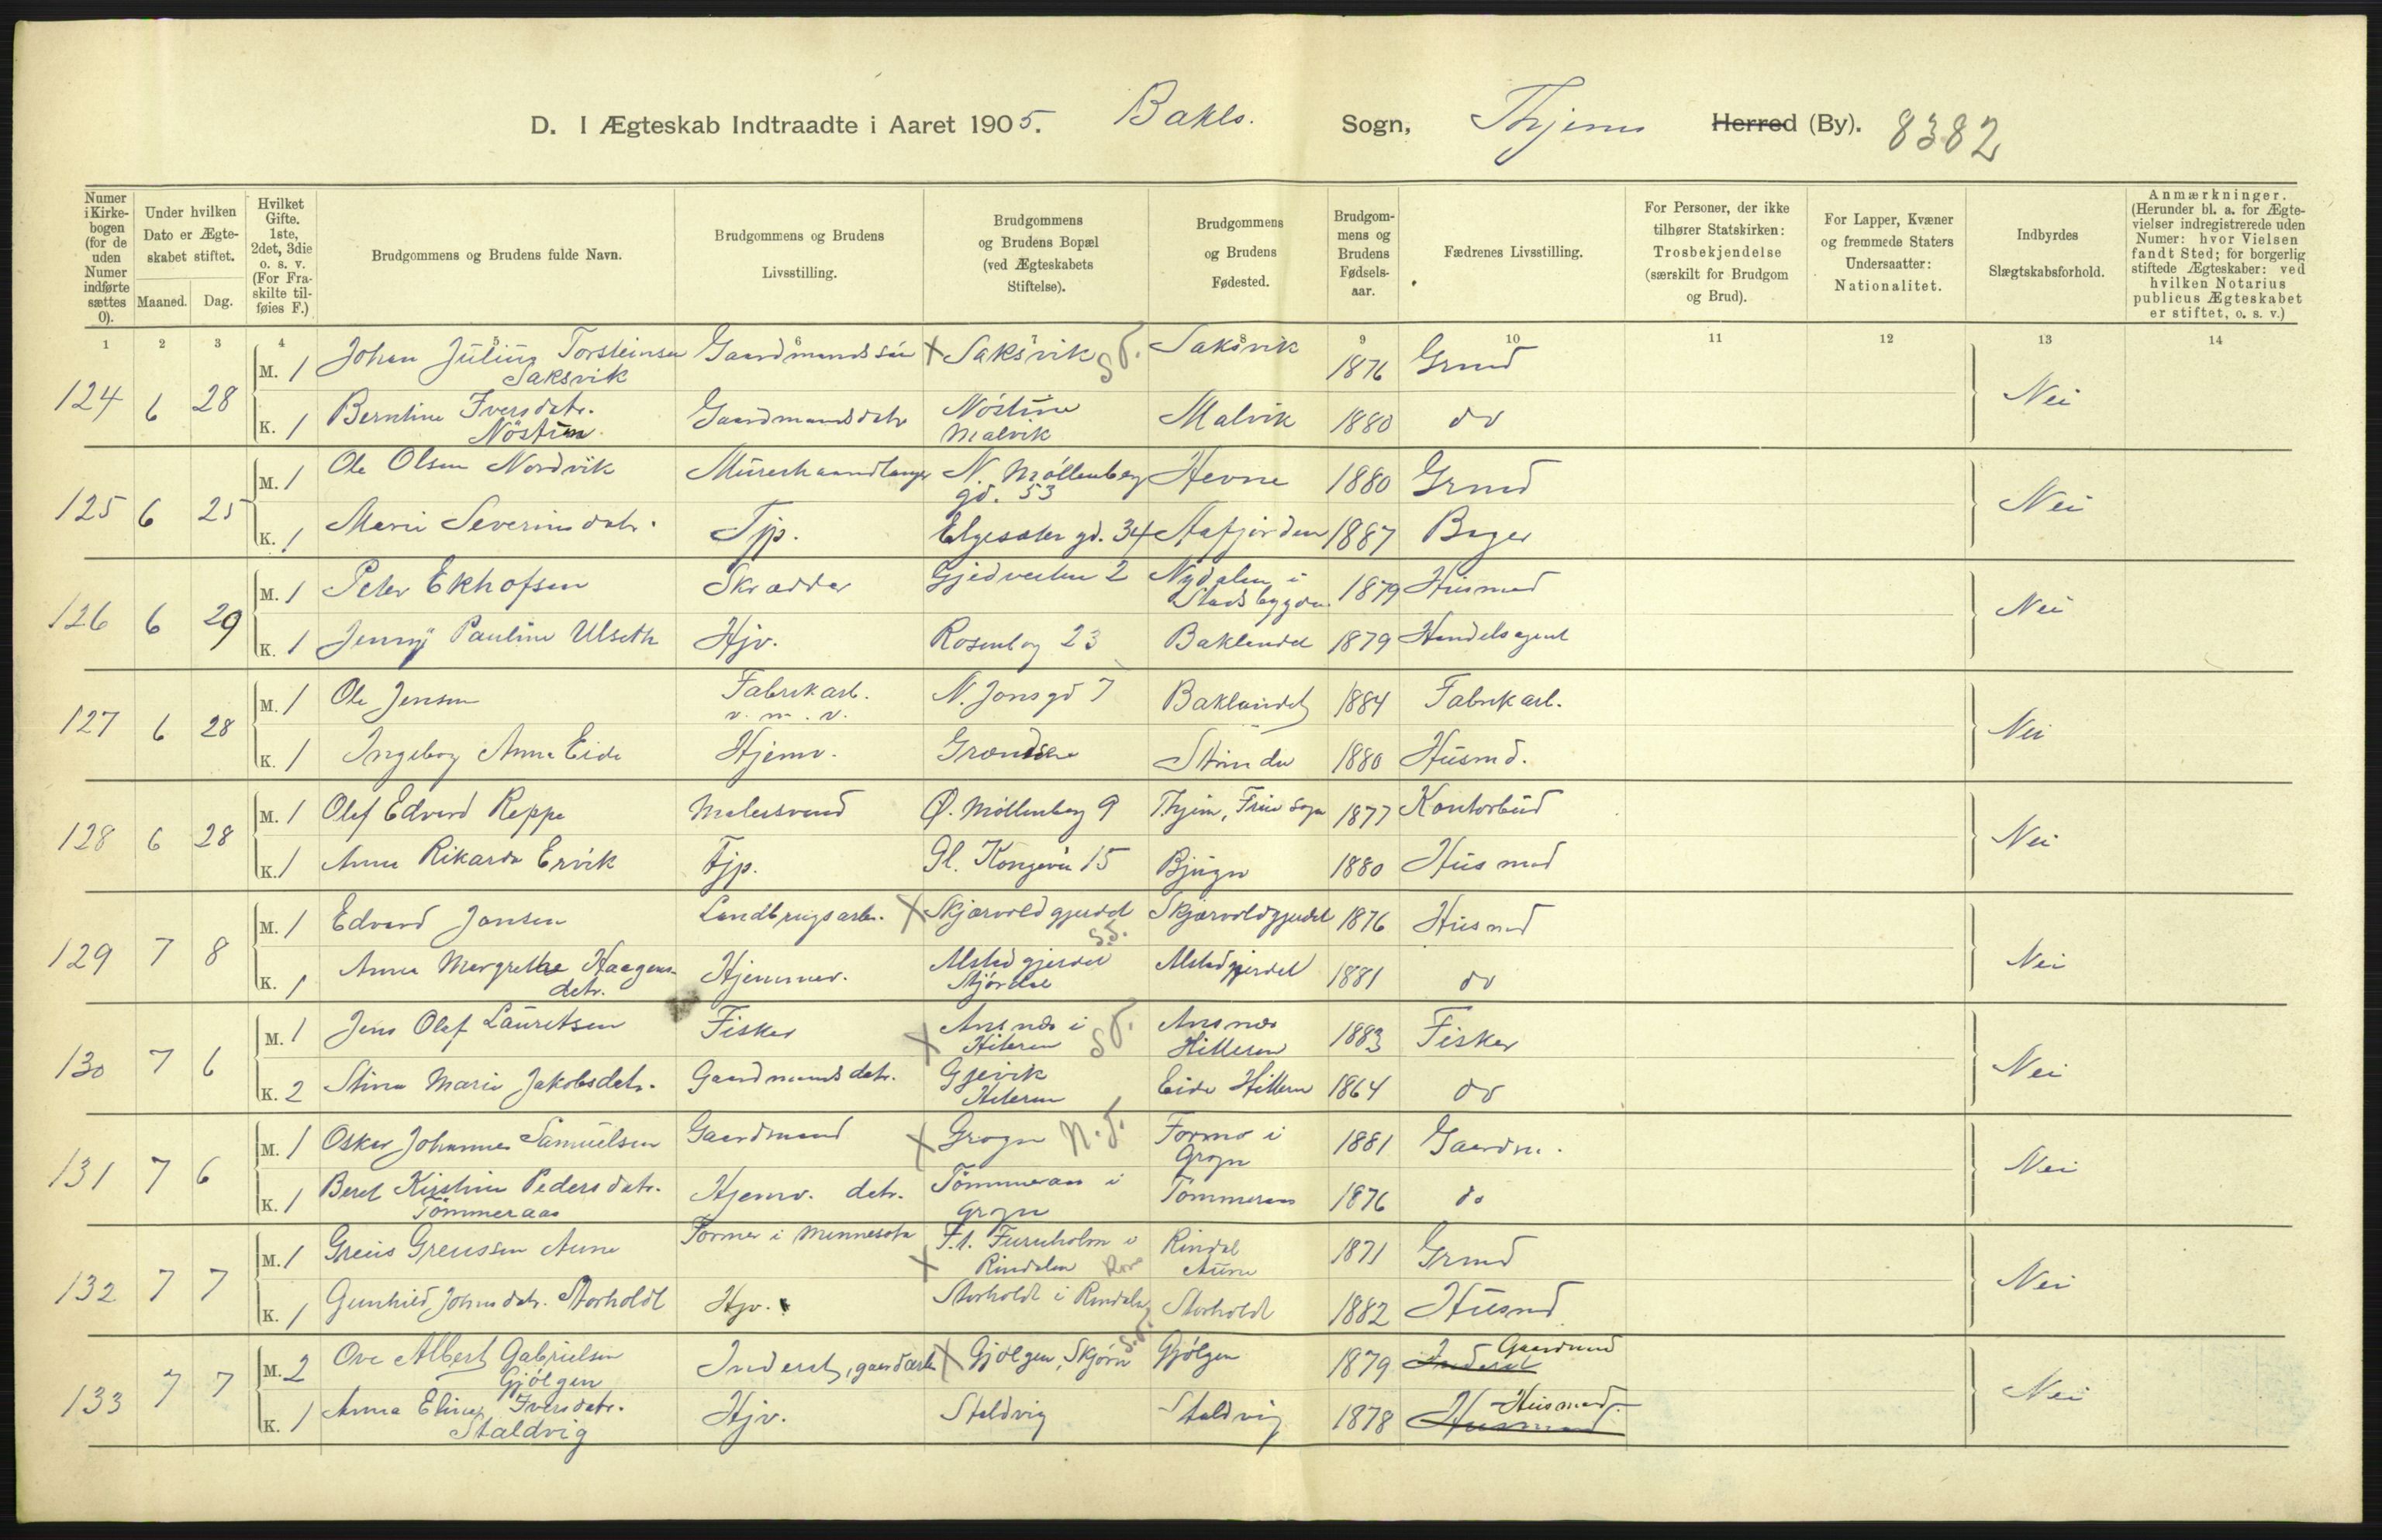 D. I Ægteskab Indtraadte i Aaret 1905. Bakls. Sogn, Thjems Herred (By). 8382
Numer i Kirkebogen (for de uden Numer indførte sættes 0).
Under hvilken Dato er Ægteskabet stiftet.
Maaned. Dag.
Hvilket Gifte. 1ste, 2det, 3die o. s. v. (For Fraskilte tilføies F.)
Brudgommens og Brudens fulde Navn.
Brudgommens og Brudens Livsstilling.
Brudgommens og Brudens Bopæl (ved Ægteskabets Stiftelse).
Brudgommens og Brudens Fødested.
Brudgommens og Brudens Fødselsaar.
Fædrenes Livsstilling.
For Personer, der ikke tilhører Statskirken: Trosbekjendelse (særskilt for Brudgom og Brud).
For Lapper, Kvæner og fremmede Staters Undersaatter: Nationalitet.
Indbyrdes Slægtskabsforhold.
Anmærkninger. (Herunder bl. a. for Ægtevielser indregistrerede uden Numer: hvor Vielsen fandt Sted; for borgerlig stiftede Ægteskaber: ved hvilken Notarius publicus Ægteskabet er stiftet, o. s. v.)
1 2 3 4 5 6 7 8 9 10 11 12 13 14
124 6 28 M. 1 Johan Julius Torsteinsen Saksvik Gaardmandssön Saksvik S.T. Saksvik 1876 Grmd Nei
K. 1 Berntine Iversdatr. Nöstum Gaardmandsdatr Malvik Malvik 1880 do
125 6 25 M. 1 Ole Olsen Nordvik Murerhaandlanger N. Möllenberg gd. 53 Hevne 1880 Grmd Nei
K. 1 Marie Severinsdatr. Tjp. Elgesæter gd. 34 Aafjorden 1887 Bager
126 6 29 M. 1 Peter Ekhofsen Skrædder Gjedvesten 2 Nydalen i Stadsbygden 1879 Husmd Nei
K. 1 Jenny Pauline Ulseth Hjv. Rosenborg 23 Baklandet 1879 Handelsagent
127 6 28 M. 1 Ole Jensen Fabrikarb. v. m. v. N. Jonsgd 7 Baklandet 1884 Fabrikarb. Nei
K. 1 Ingeborg Anna Eide Hjemv. Strinden 1880 Husmd.
128 6 28 M. 1 Olef Edvard Reppe Malersvend Ø. Möllenberg 9 Thjem, Frue Sogn 1877 Kontorbud Nei
K. 1 Anna Rikarda Ervik Tjp. Gl. Kongevei 15 Bjugn 1880 Husmd
129 7 8 M. 1 Edvard Jansen Landbrugsarb. Skjærvoldgjerdet S.T. Skjærvoldgjerdet 1876 Husmd Nei
K. 1 Anna Margrethe Haagensdatr. Hjemmev. Alstadgjerdet Stjørdal Alstadgjerdet 1881 do
130 7 6 M. 1 Jens Olaf Lauritsen Fisker Ansnes i Hiteren S.T. Ansnes Hitteren 1883 Fisker Nei
K. 2 Stina Marie Jakobsdatr. Gaardmandsdatr. Gjevik Hiteren Eide Hitteren 1864 do
131 7 6 M. 1 Oskar Johannes Samuelsen Gaardmand Grogn N.T. Formo i Grogn 1881 Gaardm. Nei
K. 1 Beret Kirstine Pedersdatr. Tömmeraas Hjemv. datr. Tömmeraas i Grogn Tömmeraas 1876 do
132 7 7 M. 1 Greiis Greussen Aune Farmer i Minnesota F.t. Furuholm i Rindalen Rom Rindal Aune 1871 Grmd Nei
K. 1 Gunhild Johnsdatr. Storholdt Hjv. Storholdt i Rindalen Storholdt 1882 Husmd
133 7 7 M. 2 Ove Albert Gabrielsen Gjölgen Inderst, gaardarb Gjölgen, Skjørn S.T. Gjölgen 1879 Inderst Gaardmd Nei
K. 1 Anna Elina Iversdatr. Staldvig Hjv. Staldvig Staldvig 1878 Husmand Husmand